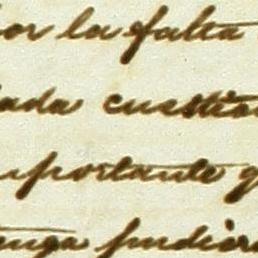 or la falta
ada cuestió
mportante q
enga pudiera